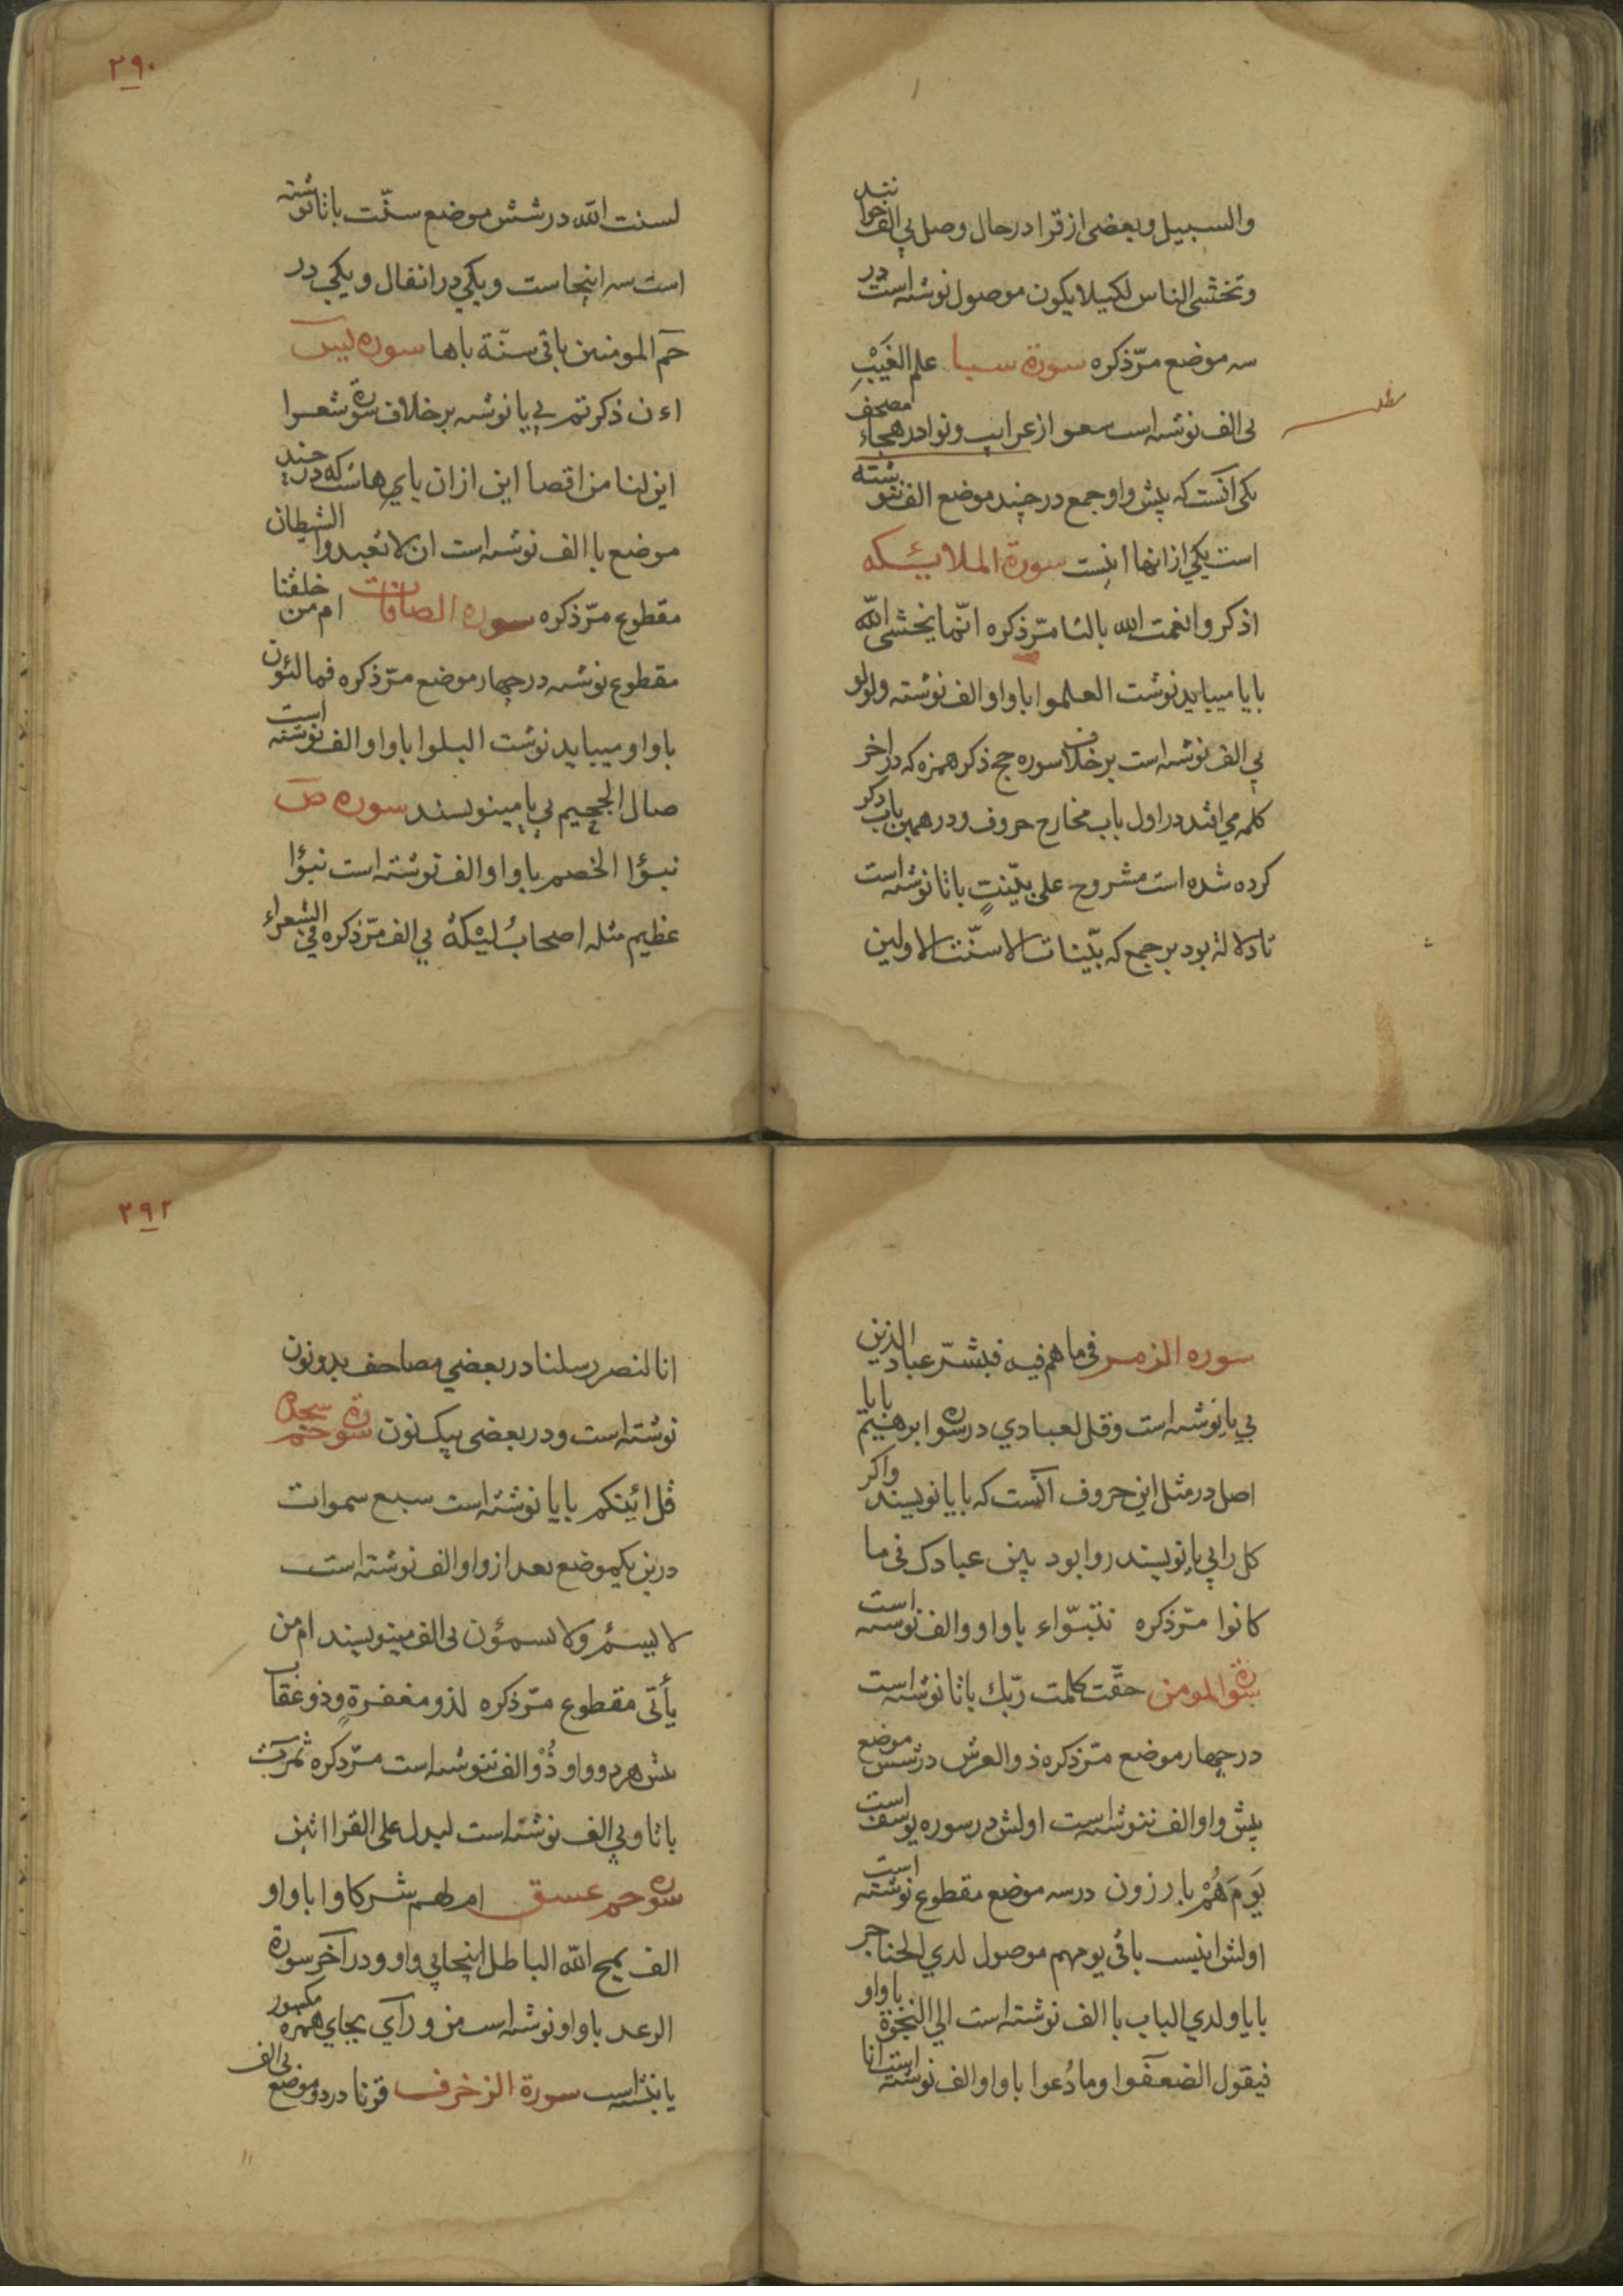 والسبیل وبعضی از قرا در حال وصل بی الف خوانند
وتخشی الناس لکیلا یکون موصول نوشته است در
سه موضع مرّ ذکره سورة سبا علم الغَیْبِ
بی الف نوشته است سعو از غرایب و نوادر هجاء مصحف
یکی آنست که پیش واو جمع در چند موضع الف ننوشته
است یکی از انها اینست سورة الملایٔکه
اذکروا نعمت الله بالتا مرّ ذکره انّما یخشی الله
بایا میباید نوشت العلموا باواو الف نوشته ولولو
بی الف نوشته است بر خلاف سوره حج ذکر همزه که در اخر
کلمه می افتد در اول باب مخارج حروف و در همین باب ذکر
کرده شده است مشروح علی بیّنتٍ باتا نوشته است
تا دلالة بود بر جمع که بیّنات الا سنّت الاولین
۲۹۰
لسنت الله در شش موضع سنّت باتا نوشته
است سه اینجاست و یکی در انفال و یکی در
حمٓ المومنین باقی سنّة باها سوره یسٓ
اءن ذکرتم بی یا نوشته بر خلاف سورة شعرا
این لنا من اقصا این ازان یای هاست که در چند
موضع با الف نوشته است ان لا تعبدوا الشیطان
مقطوع مرّ ذکره سوره الصافات ام من خلقنا
مقطوع نوشته در چهار موضع مرّ ذکره فمالئون
باواو میباید نوشت البلوا باواو الف نوشته است
صال الجحیم بی یا مینویسند سوره صٓ
نبؤا الخصم باواو الف نوشته است نبؤا
عظیم مثله اصحابُ لیْکة بی الف مرّ ذکره فی الشعراء
سوره الزمر فی ما هم فیه فبشّر عباد الذین
بی یا نوشته است وقل لعبادی در سوره ابرهیم بایا
اصل در مثل این حروف آنست که بایا نویسند واکر
کل را بی یا نویسند روا بود بین عبادک فی ما
کانوا مرّ ذکره نتبوّاء باواو والف نوشته است
سورة المومن حقّت کلمت ربّك باتا نوشته است
در چهار موضع مرّ ذکره ذو العرش در شش موضع
پیش واو الف ننوشته است اولش در سوره یوسف است
یَومَ هُمْ بارزون در سه موضع مقطوع نوشته است
اولش اینست باقی یومهم موصول لدی الحناجر
بایا ولدی الباب با الف نوشته است الی النجوة باواو
فیقول الضعفوا وما دُعوا باواو الف نوشته است انا
۲۹۲
انا لنصر رسلنا در بعضی مصاحف بدونون
نوشته است ودر بعضی بیک نون سورة حم سجده
قل ائینکم بایا نوشته است سبع سموات
درین یکموضع بعد از واو الف نوشته است
لا یسئم ولا یسمؤن بی الف مینویسند ام من
یأتی مقطوع مرّ ذکره لذو مغفرةٍ وذو عقاب
پش هر دو واو ذُوْ الف ننوشته است مرّ ذکره ثمرت
باتا وبی الف نوشته است لیدل علی القرااتین
سوره حم عسق ام لهم شرکاوا باواو
الف یمح الله الباطل اینجا بی واو ودر آخر سورة
الرعد باواو نوشته است من ورآی بجای همزه مکسور
یا نبشته است سورة الزخرف قرنا در دو موضع بی الف